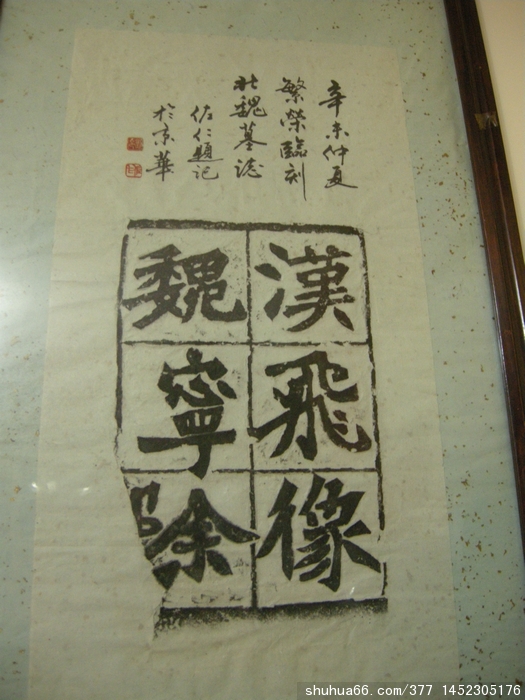 辛未仲夏
繁榮臨刻
北魏墓誌
佐仁題記
於京華
漢飛像
魏寧
shuhua66.com/377 1452305176